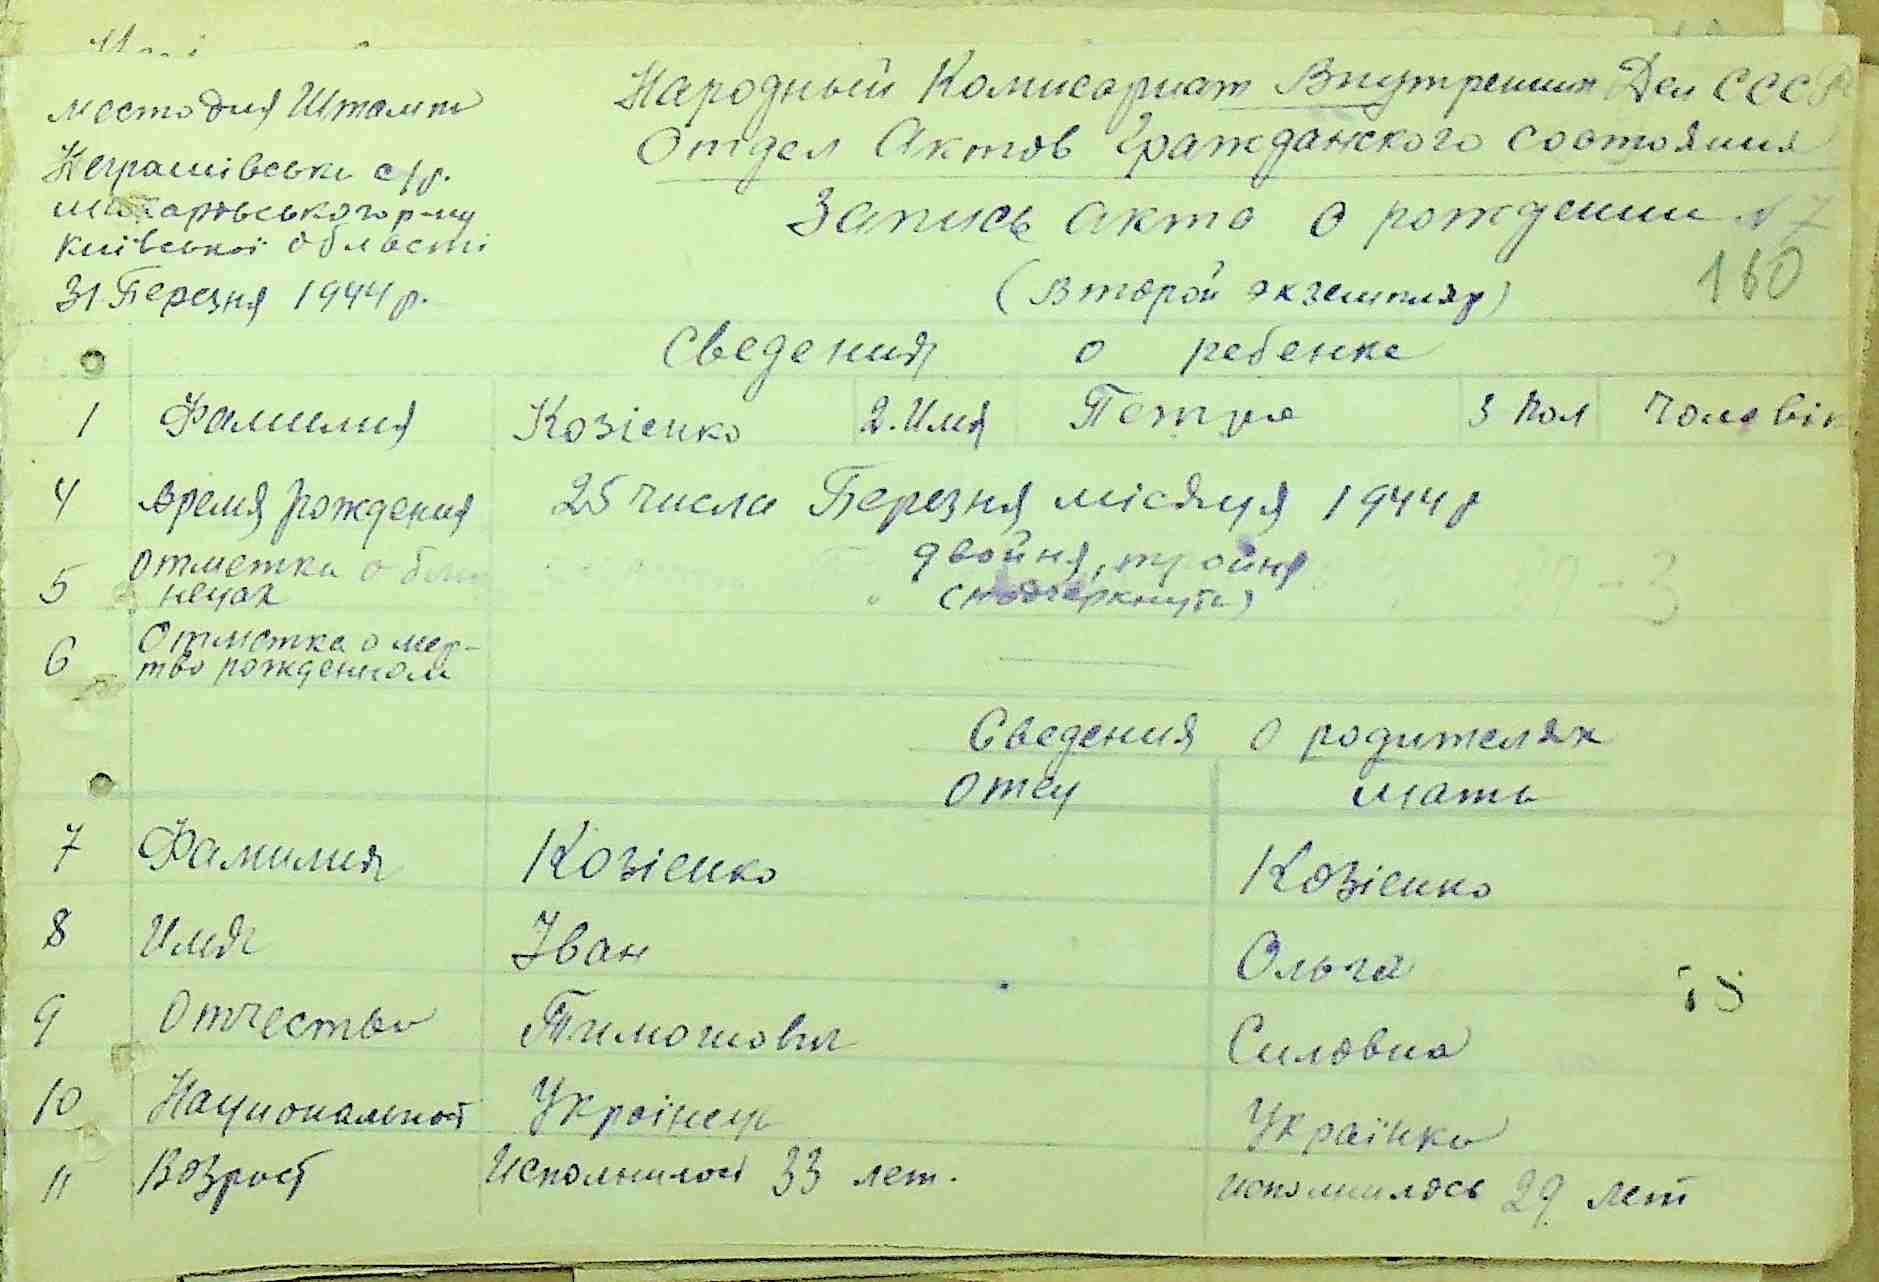 Народный Комисариат Внутрених Дел СССР
Отдел Актов Гражданского состояния
Запись акта о рождении №7
(Второй экземпляр)
160
место для Штампа
с/р.
Макарівського р-ну
Київської області
31 Березня 1944 р.
Сведения о ребенке
1 Фамилия Козієнко 2. Имя Петро 3 Пол Чоловік
4 Время рождения 25 числа Березня місяця 1944 р
5 Отметка о близ двойня, тройня
нецах (подчеркнуть)
6 Отметка о мер-
тво рожденном
Сведения о родителях
Отец мать
7 Фамилия Козієнко Козієнко
8 Имя Іван Ольга
9 Отчество Тимошовіч Силовна
10 Национальност Українець Українка
11 Возраст Исполнилось 33 лет. исполнилось 29 лет